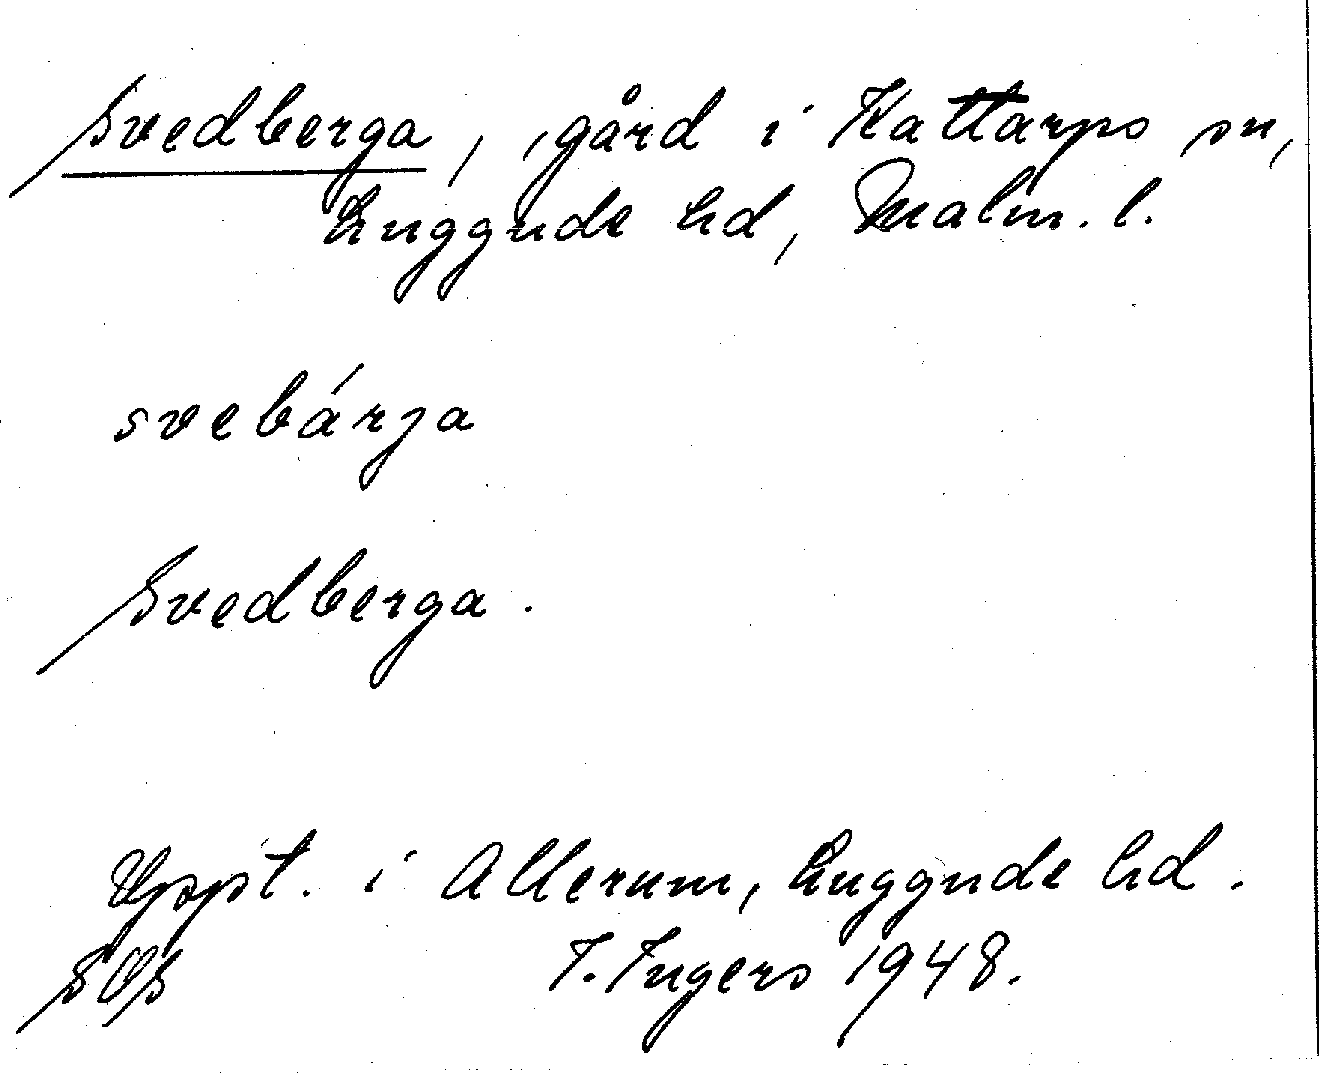 Svedberga, gård i Kattarps sn,
Luggude hd, Malm. l.
svebárja
Svedberga.
Uppt. i Allerum, Luggude hd.
SOS I. Ingers 1948.